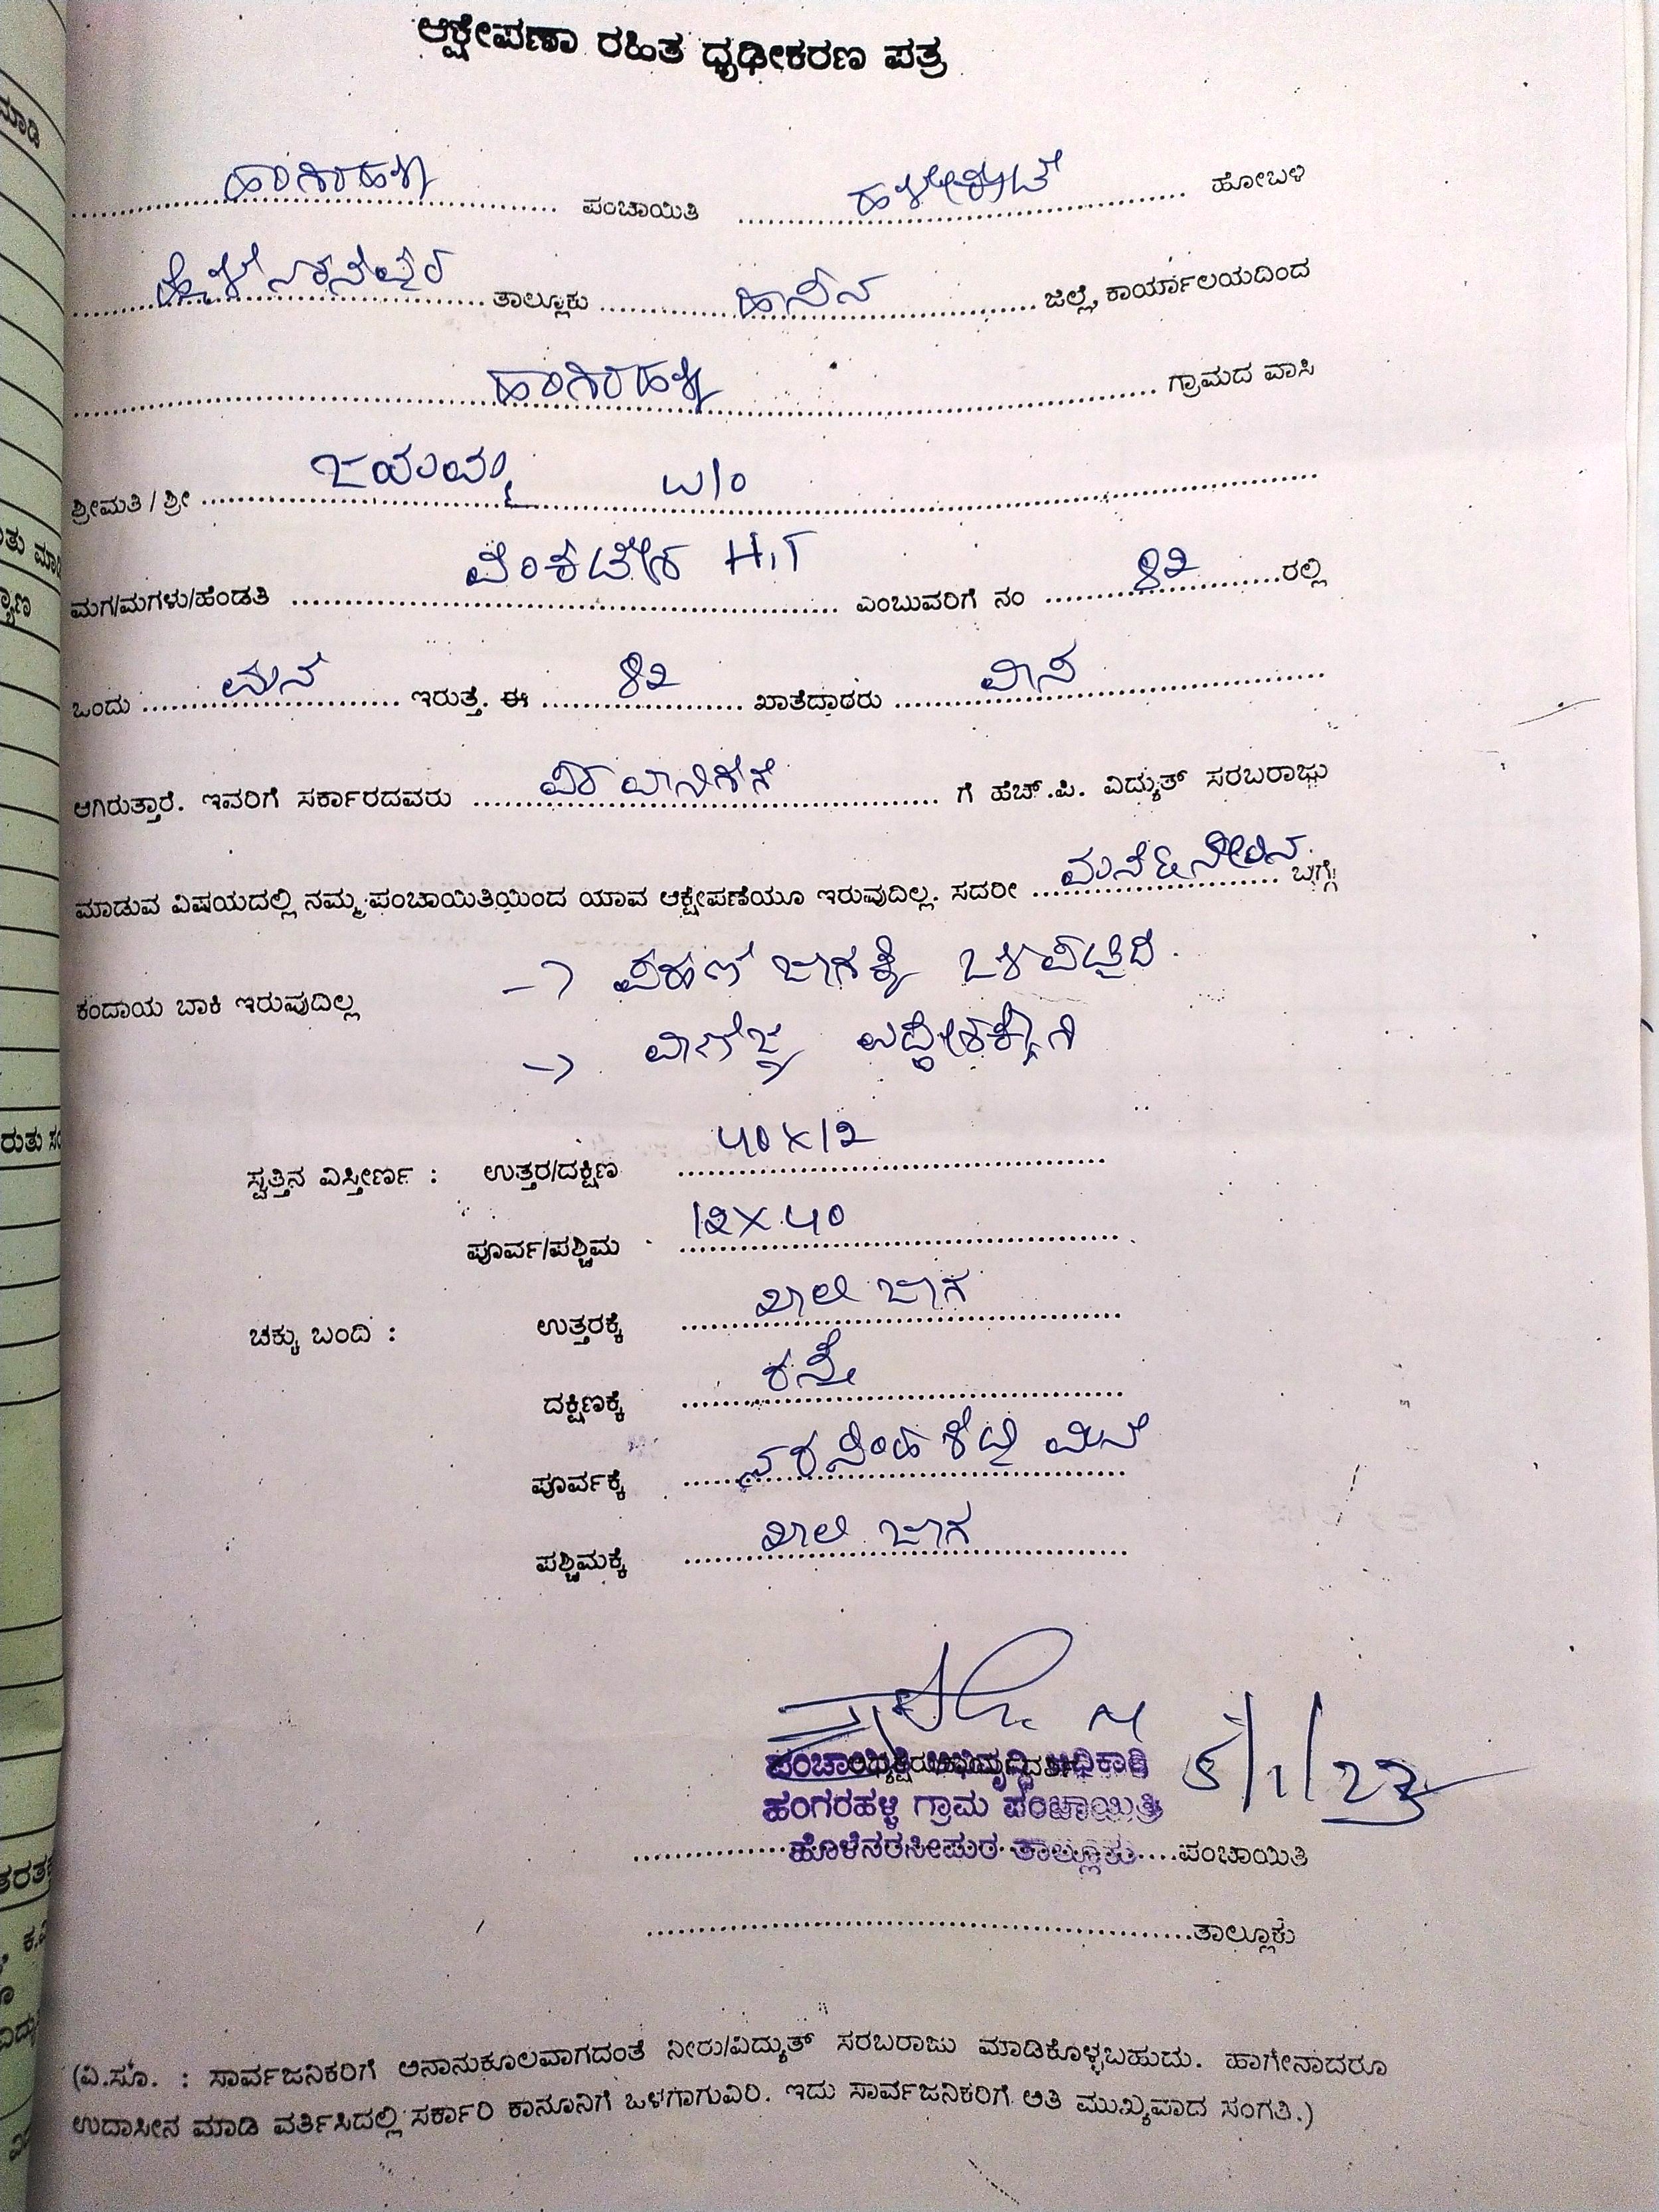 ಆಕ್ಷೇಪಣಾ ರಹಿತ ಧೃಢೀಕರಣ ಪತ್ರ
ಹಂಗರಹಳ್ಳಿ ಪಂಚಾಯಿತಿ ಹಳೇಕೋಟೆ ಹೋಬಳಿ
ಹೊಳೆನರಸೀಪುರ ತಾಲ್ಲೂಕು ಹಾಸನ ಜಿಲ್ಲೆ, ಕಾರ್ಯಾಲಯದಿಂದ
ಹಂಗರಹಳ್ಳಿ ಗ್ರಾಮದ ವಾಸಿ
ಶ್ರೀಮತಿ / ಶ್ರೀ ಜಯಮ್ಮ W/o
ಮಗ/ಮಗಳು/ಹೆಂಡತಿ ವೆಂಕಟೇಶ H.T ಎಂಬುವರಿಗೆ ನಂ 82 ರಲ್ಲಿ
ಒಂದು ಮನೆ ಇರುತ್ತೆ. ಈ 82 ಖಾತೆದಾರರು ವಾಸ
ಆಗಿರುತ್ತಾರೆ. ಇವರಿಗೆ ಸರ್ಕಾರದವರು ಗೆ ಹೆಚ್.ಪಿ. ವಿದ್ಯುತ್ ಸರಬರಾಜು
ಮಾಡುವ ವಿಷಯದಲ್ಲಿ ನಮ್ಮ ಪಂಚಾಯಿತಿಯಿಂದ ಯಾವ ಆಕ್ಷೇಪಣೆಯೂ ಇರುವುದಿಲ್ಲ. ಸದರೀ ಮನೆ & ನೀರಿನ ಬಗ್ಗೆ
ಕಂದಾಯ ಬಾಕಿ ಇರುವುದಿಲ್ಲ → ಜಾಗಕ್ಕೆ ಒಳಪಟ್ಟಿದೆ.
→ ಉದ್ದೇಶಕ್ಕಾಗಿ
ಸ್ವತ್ತಿನ ವಿಸ್ತೀರ್ಣ : ಉತ್ತರ/ದಕ್ಷಿಣ 40X12
ಪೂರ್ವ/ಪಶ್ಚಿಮ 12X40
ಚಕ್ಕು ಬಂದಿ : ಉತ್ತರಕ್ಕೆ ಖಾಲಿ ಜಾಗ
ದಕ್ಷಿಣಕ್ಕೆ ರಸ್ತೆ
ಪೂರ್ವಕ್ಕೆ ನರಸಿಂಹ ಶೆಟ್ಟಿ ಮನೆ
ಪಶ್ಚಿಮಕ್ಕೆ ಖಾಲಿ ಜಾಗ
ಪಂಚಾಯಿತಿ ಅಭಿವೃದ್ಧಿ ಅಧಿಕಾರಿ 5/1/23
ಹಂಗರಹಳ್ಳಿ ಗ್ರಾಮ ಪಂಚಾಯಿತಿ
ಹೊಳೆನರಸೀಪುರ ತಾಲ್ಲೂಕು ಪಂಚಾಯಿತಿ
ತಾಲ್ಲೂಕು
(ವಿ.ಸೂ. : ಸಾರ್ವಜನಿಕರಿಗೆ ಅನಾನುಕೂಲವಾಗದಂತೆ ನೀರು/ವಿದ್ಯುತ್ ಸರಬರಾಜು ಮಾಡಿಕೊಳ್ಳಬಹುದು. ಹಾಗೇನಾದರೂ
ಉದಾಸೀನ ಮಾಡಿ ವರ್ತಿಸಿದಲ್ಲಿ ಸರ್ಕಾರಿ ಕಾನೂನಿಗೆ ಒಳಗಾಗುವಿರಿ. ಇದು ಸಾರ್ವಜನಿಕರಿಗೆ ಅತಿ ಮುಖ್ಯವಾದ ಸಂಗತಿ.)